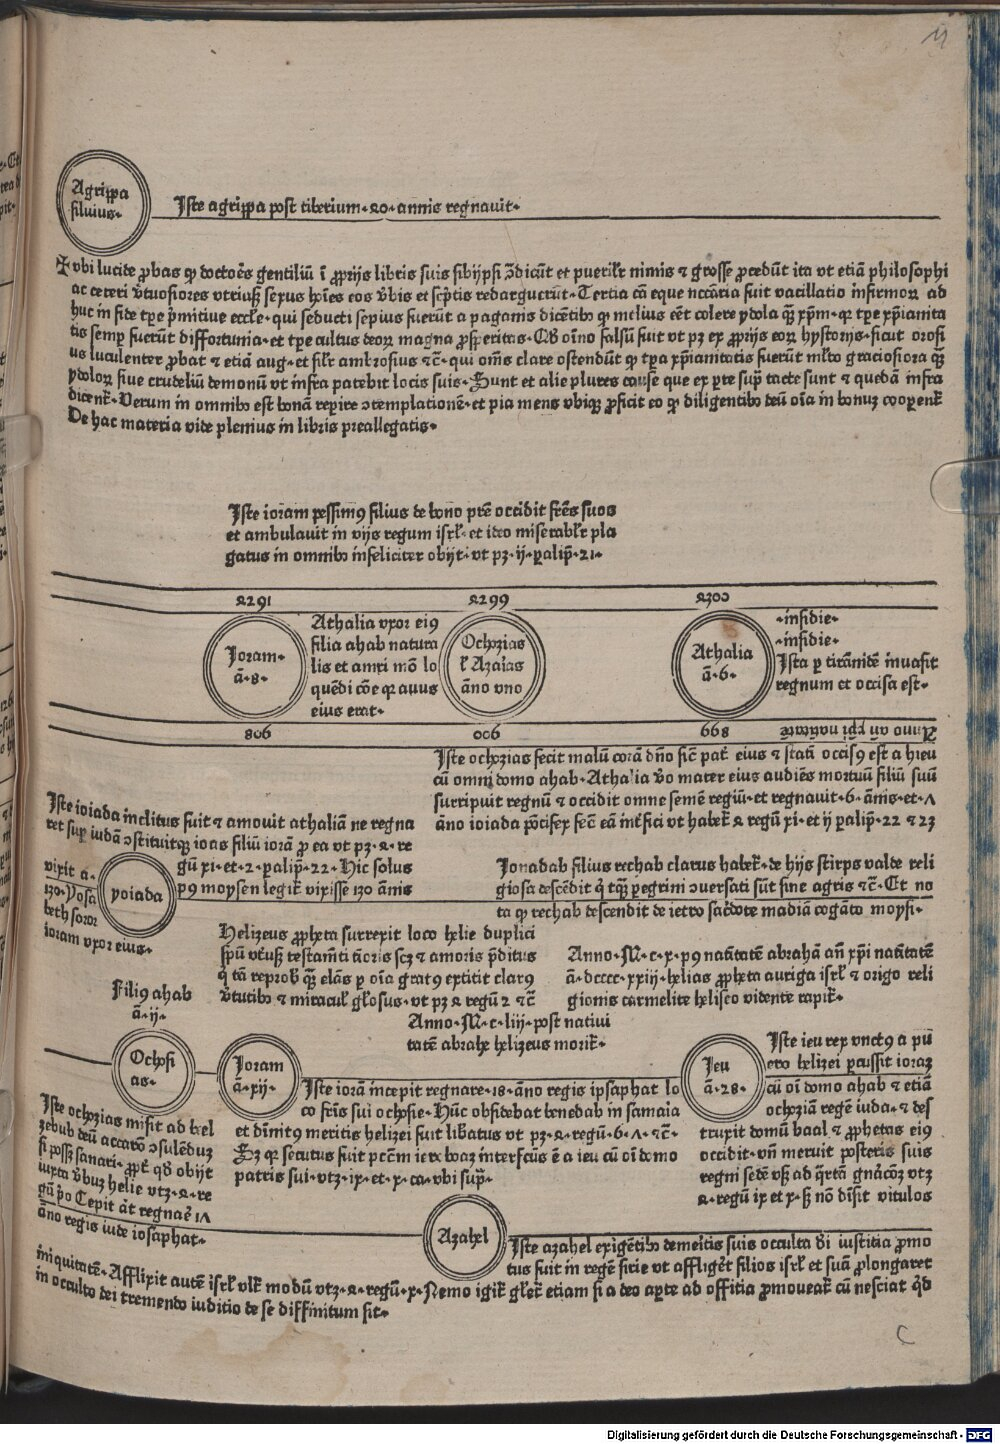 11
Agrippa
siluius.
Iste agrippa post tiberium. 40. annis regnauit.
vbi lucide ꝓbas ꝙ doctoẽs gentiliũ ĩ ꝓprijs libris suis sibijpsi ↄ̃dicũt et puerilr̃ nimis ⁊ grosse ꝓcedũt ita vt etiã philosophi
ac ceteri ꝟtuosiores vtriusꝫ sexus hoĩes eos ꝟbis et scp̃tis redarguerũt. Tertia cã eque nccãria fuit vacillatio infirmoꝝ ad
huc in fide tꝑe p̃mitiue eccl̃e. qui seducti sepius fuerũt a paganis dicẽtibꝰ ꝙ melius eẽt colere ydola q̃ꝫ xp̃m. ꝙ tꝑe xp̃ianita
tis semꝑ fuerũt diffortunia. et tꝑe cultus deoꝝ magna ꝓsperitas. Qð oĩno falsũ fuit vt pꝫ ex ꝓprijs eoꝝ hystorijs. sicut orosi
us luculenter ꝓbat ⁊ etiã aug. et silr̃ ambrosius ⁊c̃. qui om̃s clare ostendũt ꝙ tꝑa xp̃ianitatis fuerũt ml̃to graciosiora q̃ꝫ
ydoloꝝ siue crudeliũ demonũ vt infra patebit locis suis. Sunt et alie plures cause que ex ꝑte sup̃ tacte sunt ⁊ quedã infra
dicent̃. Verum in omnibꝰ est bonã reꝑire ↄtemplationẽ. et pia mens vbiqꝫ ꝓficit eo ꝙ diligentibꝰ deũ oĩa in bonuꝫ cooꝑent̃
De hac materia vide plenius in libris preallegatis.
Iste ioram pessimꝰ filius de bono pr̃e occidit fr̃es suos
et ambulauit in vijs regum isrl̃. et ideo miserabl̃r pla
gatus in omnibꝰ infeliciter obijt. vt pꝫ. ij. ꝑalip̃. 21.
4291
4299
4300
Ioram.
ã. 8.
Athalia vxor eiꝰ
filia ahab natura
lis et amri mõ lo
quẽdi cõe ꝙ auus
eius erat.
Ochozias
ł Azarias
ãno vno
Athalia
ã. 6.
.insidie.
.insidie.
Ista ꝑ tirãnidẽ inuasit
regnum et occisa est.
908
900
899
Anno añ xp̃i natiuitatẽ
Iste ochozias fecit malũ corã dño sic̃ pat̃ eius ⁊ statĩ occisꝰ est a hieu
cũ omni domo ahab. Athalia ꝟo mater eius audiẽs mortuũ filiũ suũ
surripuit regnũ ⁊ occidit omne semẽ regiũ. et regnauit. 6. ãnis. et. 7
ãno ioiada põtifex fec̃ eã int̃fici vt habet̃ 4 regũ xi. et ij ꝑalip̃. 22 ⁊ 23
Iste ioiada inclitus fuit ⁊ amouit athaliã ne regna
ret suꝑ iudã ↄstituitqꝫ ioas filiũ iorã ꝓ ea vt pꝫ. 4. re
gũ xi. et. 2. ꝑalip̃. 22. Hic solus
pꝰ moysen legit̃ vixisse 130 ãnis
vixit a.
130. Yosa
beth soror
ioram vxor eius.
yoiada
Jonadab filius rechab clarus habet̃. de hijs stirps valde reli
giosa descẽdit q̃ tq̃ꝫ ꝑegrini ↄuersati sũt sine agris ⁊c̃. Et no
ta ꝙ rechab descendit de ietro sac̃dote madiã cognato moysi.
Helizeus ꝓpheta surrexit loco helie duplici
sp̃u vt̾usqꝫ testam̃ti tĩoris scꝫ ⁊ amoris p̃ditus
q̃ tã reprob̾ q̃ꝫ elãs ꝑ oĩa gratꝰ extitit clarꝰ
ꝟtutibꝰ ⁊ miracul̃ gl̃osus. vt pꝫ 4 regũ 2 ⁊c̃
Anno. M. c. x. pꝰ natĩtatẽ abrahã añ xp̃i natĩtatẽ
ã. dcccc. xxiij. helias ꝓpheta auriga isrl̃ ⁊ origo reli
gionis carmelite heliseo vidente rapit̃.
Anno. M. c. liij. post natiui
tatẽ abrahe helizeus morit̃.
Filiꝰ ahab
ã. ij.
Ochosi
as.
Ioram
ã. xij.
Ieu
ã. 28.
Iste ieu rex vnctꝰ a pu
ero helizei ꝑcussit ioraꝫ
cũ oĩ domo ahab ⁊ etiã
ochoziã regẽ iuda. ⁊ des
truxit domũ baal ⁊ ꝓphetas eiꝰ
occidit. vñ meruit posteris suis
regni sedẽ vsqꝫ ad q̃rtã gnãcõꝫ vtꝫ
4. regũ ix et x. sꝫ nõ dĩsit vitulos
Iste iorã incepit regnare. 18. ãno regis iosaphat lo
co fr̃is sui ochosie. Hũc obsidebat benedab in samaia
et diũitꝰ meritis helizei fuit lib̾atus vt pꝫ. 4. regũ. 6. 7. ⁊c̃.
Sꝫ ꝙ secutus fuit pcc̃m ieroboaꝫ interfctũs ẽ a ieu cũ oĩ domo
patris sui. vtꝫ. ix. et. x. ca. vbi sup̃.
Iste ochozias misit ad bel
zebub deũ accarõ ↄsulẽduꝫ
si possꝫ sanari. ꝓpt̃ qð obijt
iuxta ꝟbuꝫ helie vtꝫ. 4. re
gũ p̃o Cepit at̃ regnar̃ 17
ãno regis iude iosaphat.
Azahel
Iste azahel exigẽtibꝰ demeritis suis occulta dĩ iustitia ꝓmo
tus fuit in regẽ sirie vt affliget̃ filios isrl̃ et suã ꝓlongaret
iniquitatẽ. Afflixit autẽ isrl̃ vlt̃ modũ vtꝫ. 4. regũ. x. Nemo igit̃ gl̃iet̃ etiam si a deo aꝑte ad officia ꝓmoueat̃ cũ nesciat qð
in occulto dei tremendo iuditio de se diffinitum sit.
C
Digitalisierung gefördert durch die Deutsche Forschungsgemeinschaft - DFG